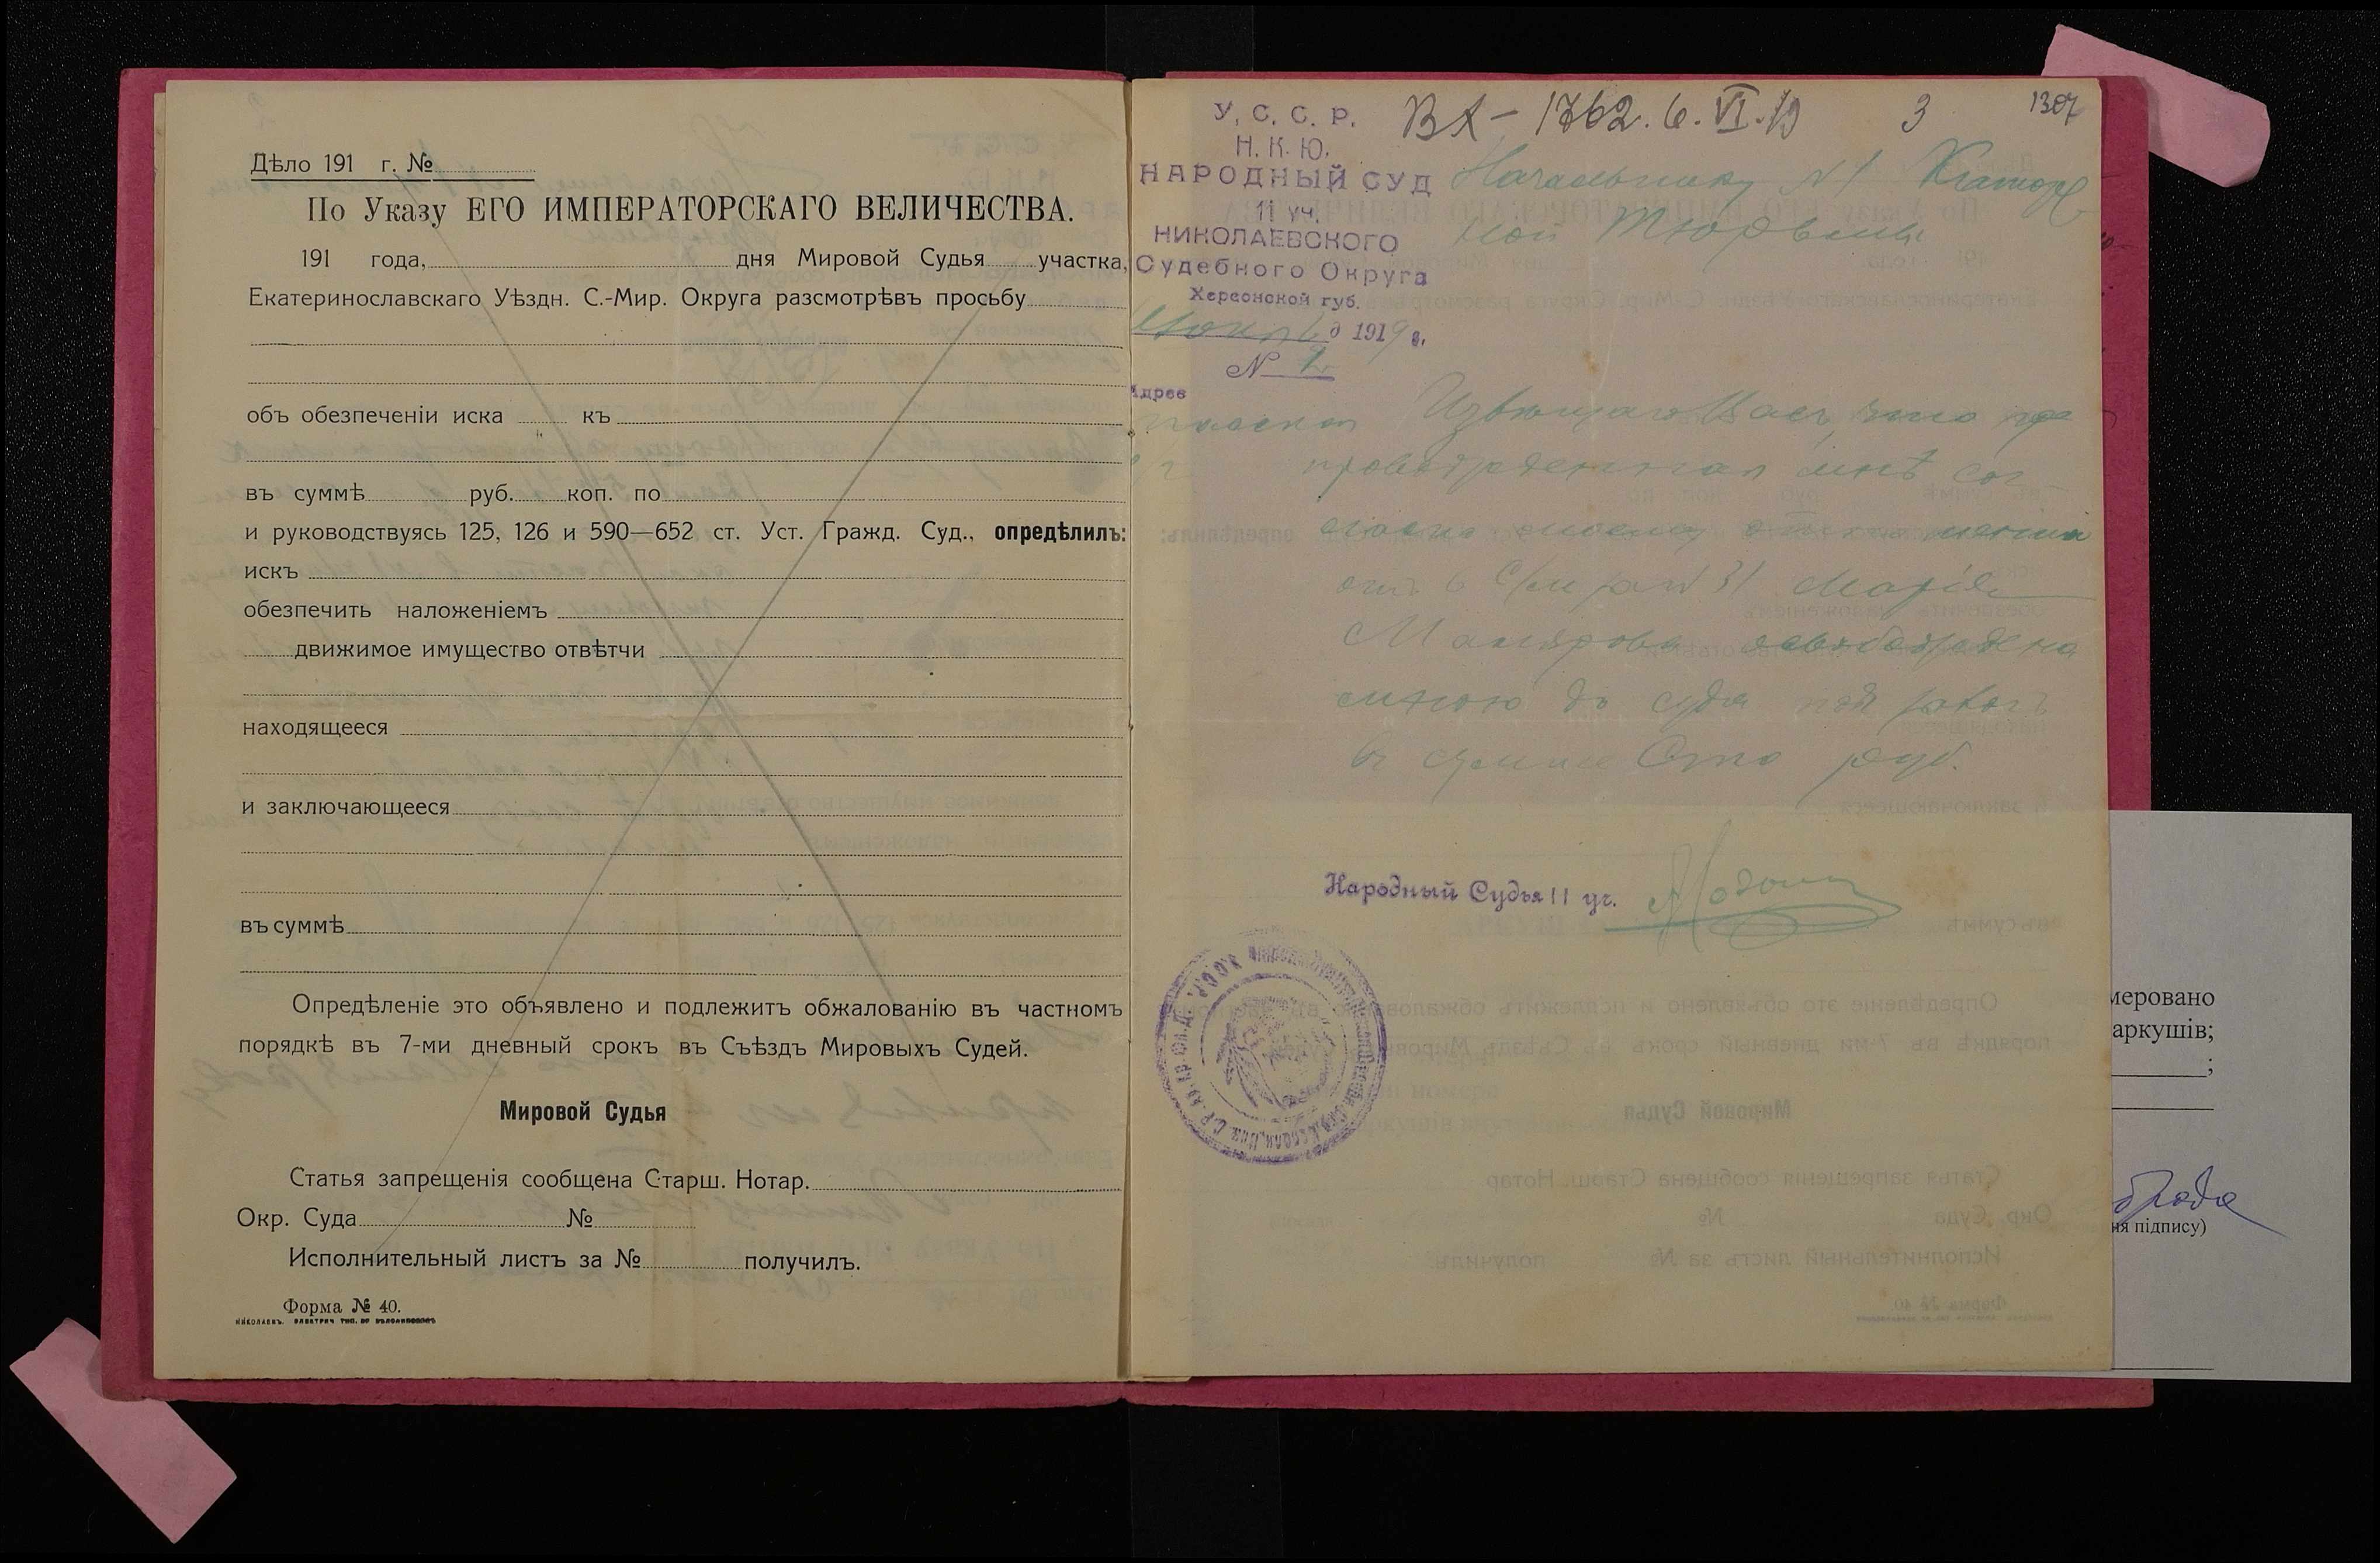 Дѣло 191 г. №
По Указу ЕГО ИМПЕРАТОРСКАГО ВЕЛИЧЕСТВА.
191 года, дня Мировой Судья участка,
Екатеринославскаго Уѣздн. С.-Мир. Округа разсмотрѣвъ просьбу
объ обезпеченіи иска къ
въ суммѣ руб. коп. по
и руководствуясь 125, 126 и 590—652 ст. Уст. Гражд. Суд., опредѣлилъ:
искъ
обезпечить наложеніемъ
движимое имущество отвѣтчи
находящееся
и заключающееся
въ суммѣ
Опредѣленіе это объявлено и подлежитъ обжалованію въ частномъ
порядкѣ въ 7-ми дневный срокъ въ Съѣздъ Мировыхъ Судей.
Мировой Судья
Статья запрещенія сообщена Старш. Нотар.
Окр. Суда №
Исполнительный листъ за № получилъ.
Форма № 40.
У. С. С. Р. ВХ - 1762. 6. VI. 19 3 1307
Н. К. Ю.
НАРОДНЫЙ СУД Начальнику №1 Каторж
11 уч. ной Тюрьмы
НИКОЛАЕВСКОГО
Судебного Округа
Херсонской губ.
1919 г.
№
Адрес
Извѣщаю Васъ, что
мнѣ сог
31 Марія
освобождена
мною до суда под залогъ
в сумме Сто руб.
Народный Судья 11 уч.
меровано
аркушів;
;
ня підпису)